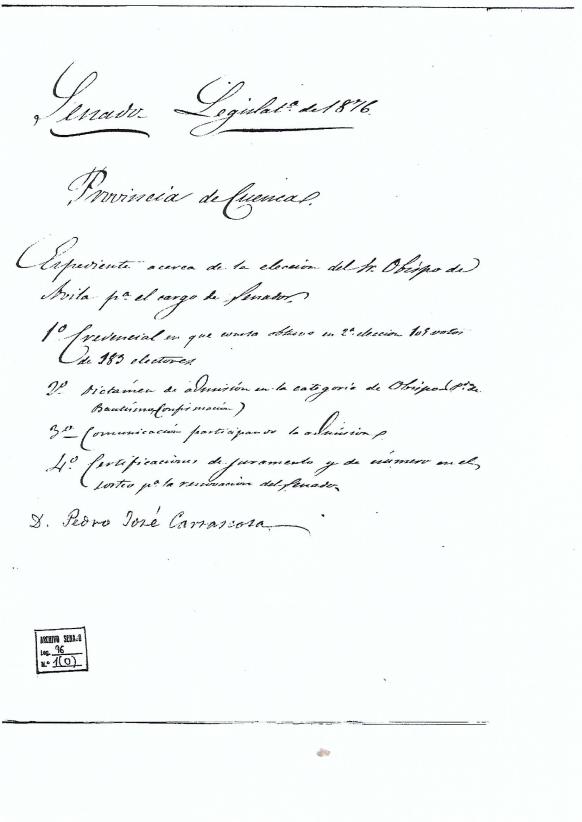 Senado Legislat.ª de 1876.
Provincia de Cuenca.
Expediente acerca de la eleccion del Sr. Obispo de
Avila p.ª el cargo de Senador
1º Credencial en que consta obtuvo en 2ª eleccion 103 votos
de 183 electores
2º Dictámen de admisión en la categoria de Obispo (P.da de
Bautismo Confirmación)
3º Comunicación participando la admision
4º Certificaciones de juramento y de número en el
sorteo pª la renovación del Senado
D. Pedro José Carrascosa
ARCHIVO SENADO
Leg. 96
N.º 1(0)